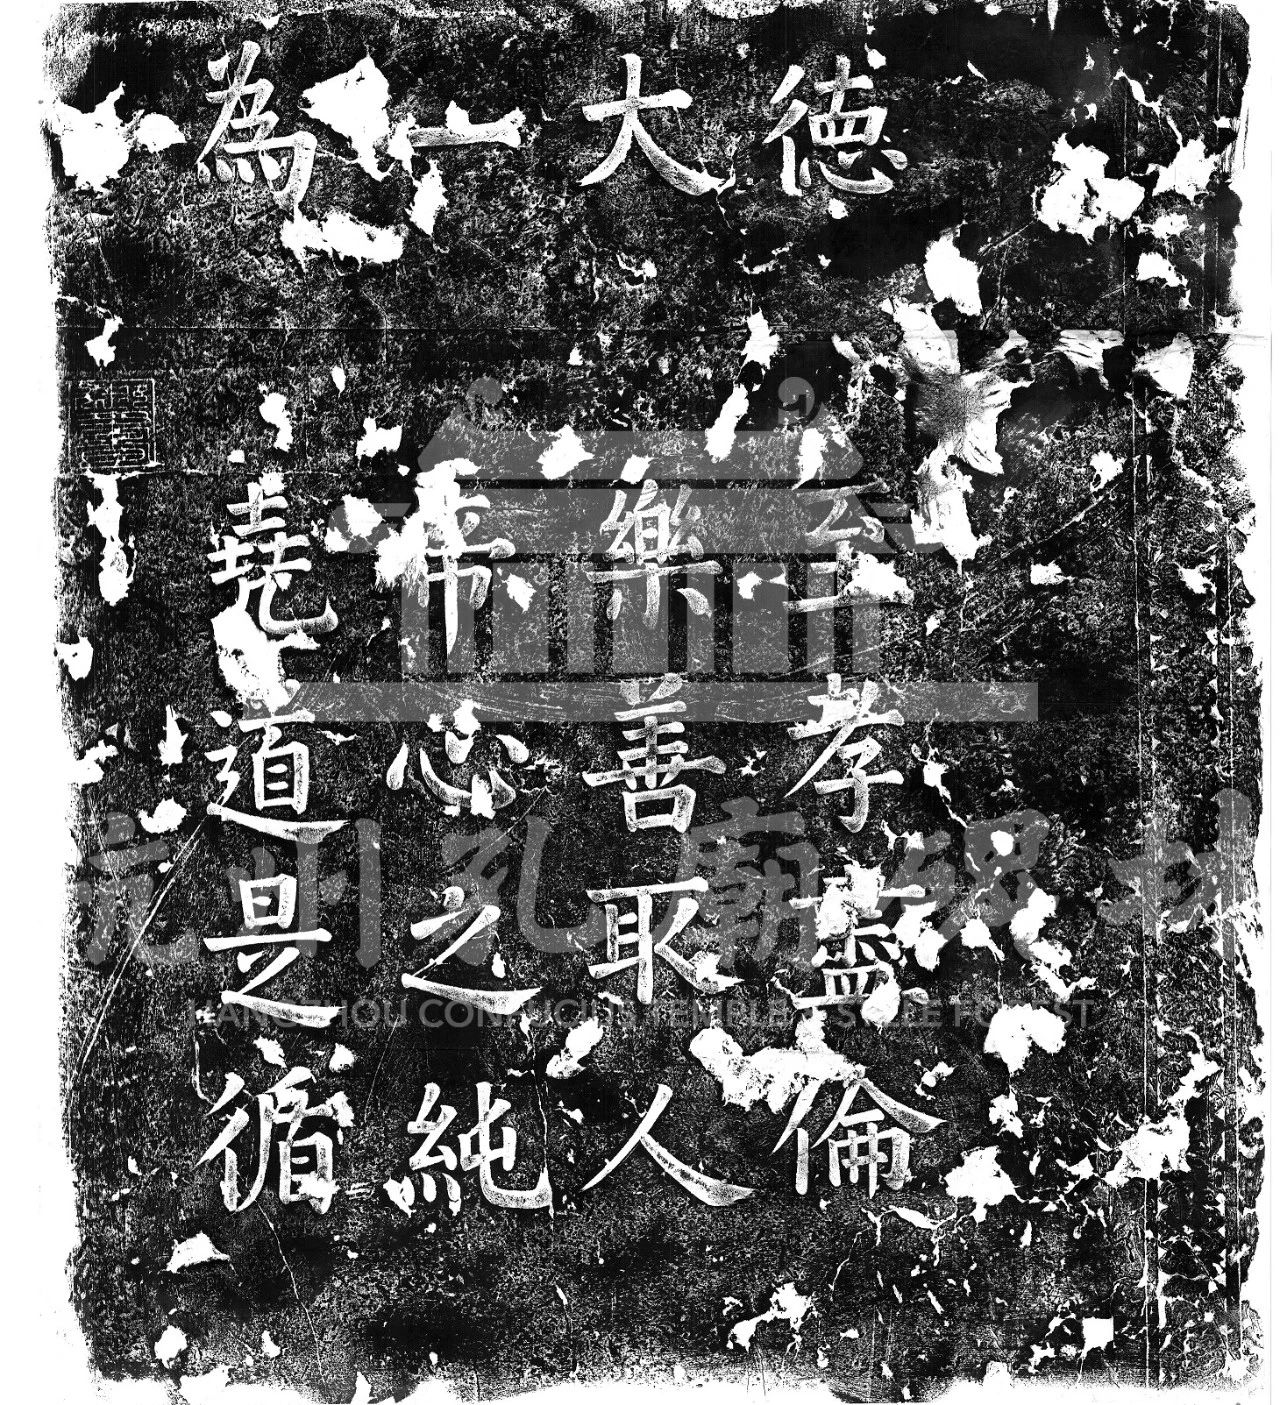 德 至孝盡倫
大 樂善取人
一 帝心之純
為 堯道是循
杭州孔廟碑林
HANGZHOU CONFUCIUS TEMPLE & STELE FOREST